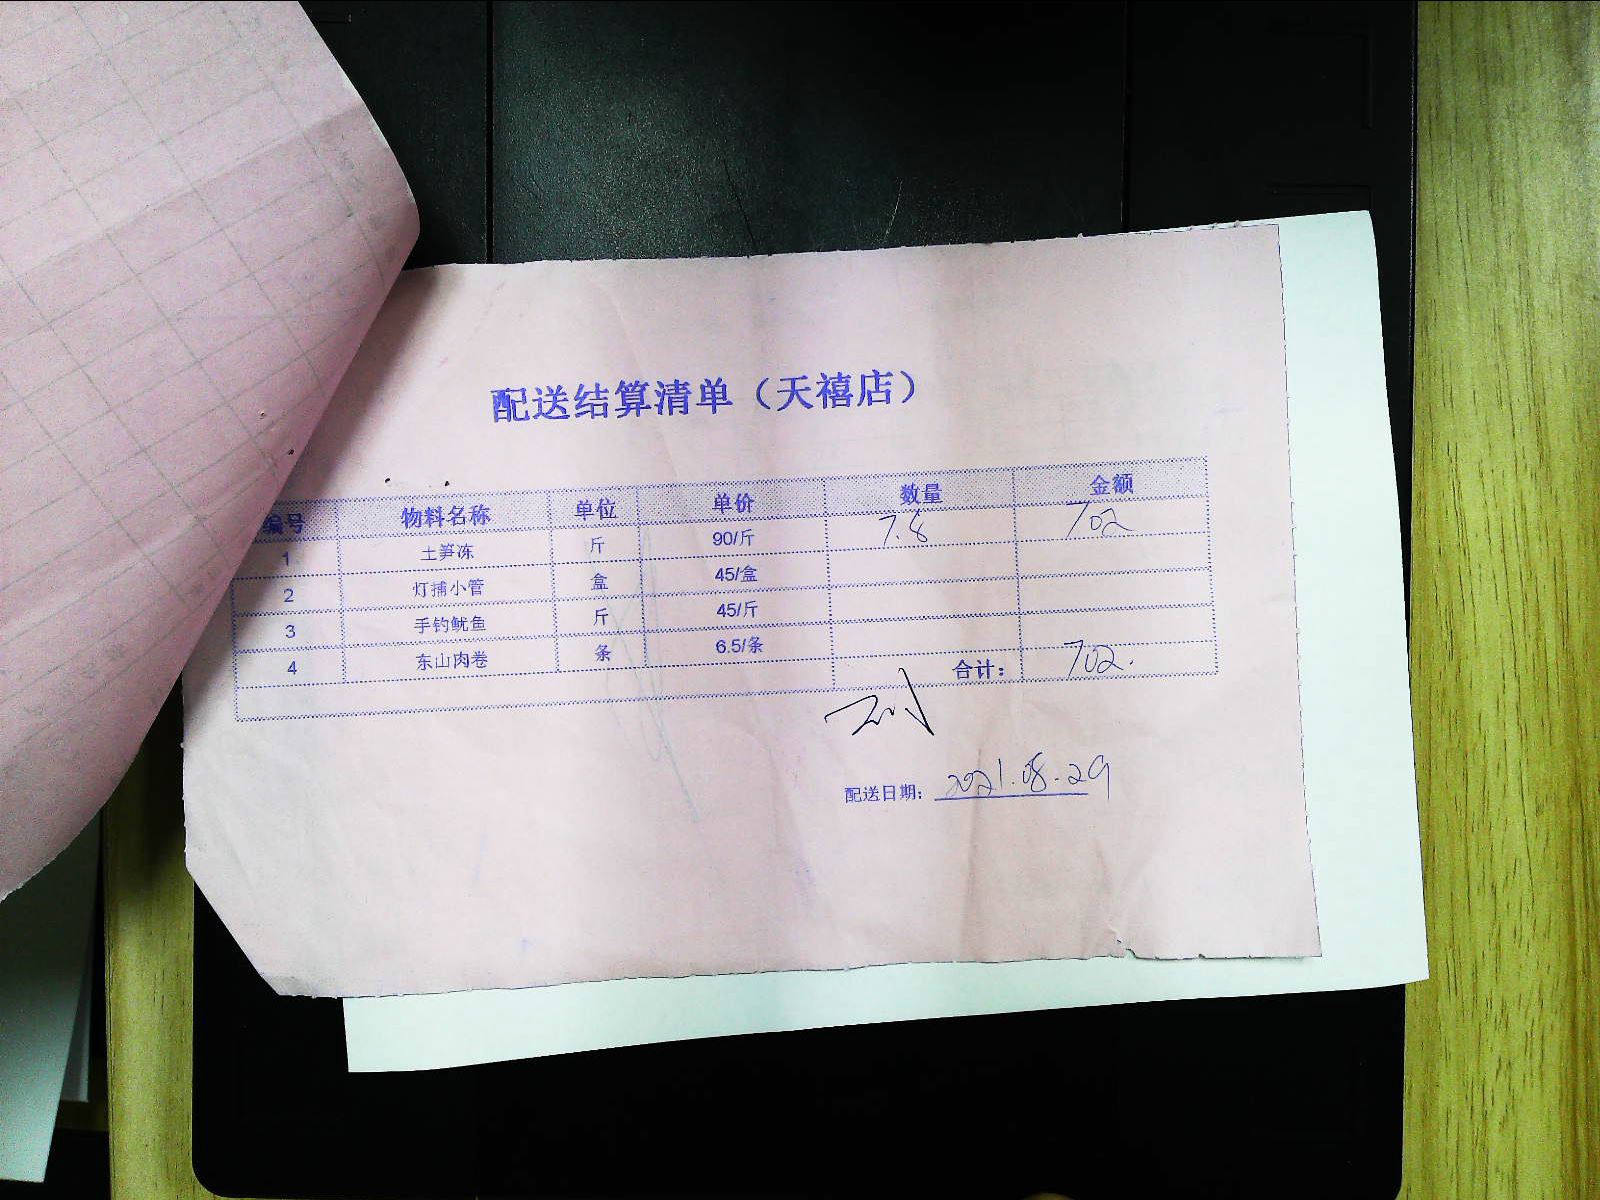 配送结算清单（天禧店）
编号 物料名称 单位 单价 数量 金额
1 土笋冻 斤 90/斤 7.8 702
2 灯捕小管 盒 45/盒
3 手钓鱿鱼 斤 45/斤
4 东山肉卷 条 6.5/条
合计： 702.
配送日期： 2021.08.29